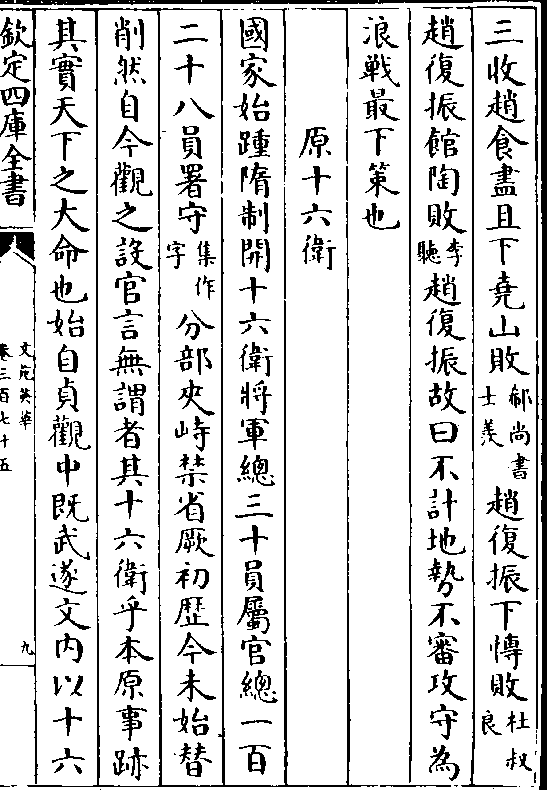 三收趙食盡且下堯山敗郗尚書士羙趙復振下愽敗杜叔良
趙復振館陶敗李聽趙復振故曰不計地勢不審攻守為
浪戰最下策也
原十六衛
國家始踵隋制開十六衛將軍總三十員屬官總一百
二十八員署守集作字分部夾峙禁省厥初歷今未始替
削然自今觀之設官言無謂者其十六衛乎本原事跡
其實天下之大命也始自貞觀中既武遂文內以十六
欽定四庫全書
文苑英華
卷三百七十五
九